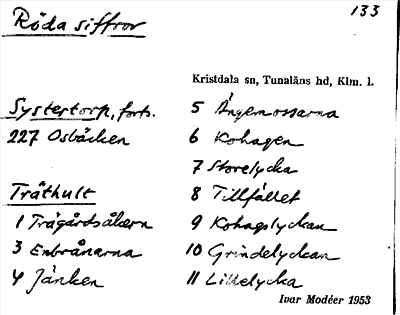 Röda siffror
133
Kristdala sn, Tunaläns hd, Klm. l.
Systertorp, forts.
227 Osbäcken
Träthult
1 Trägårdsåkern
3 Enbrånarna
4 Jänken
5 Ängemossarna
6 Kohagen
7 Storelycka
8 Tillfället
9 Kohagslyckan
10 Grindelyckan
11 Lillelycka
Ivar Modéer 1953